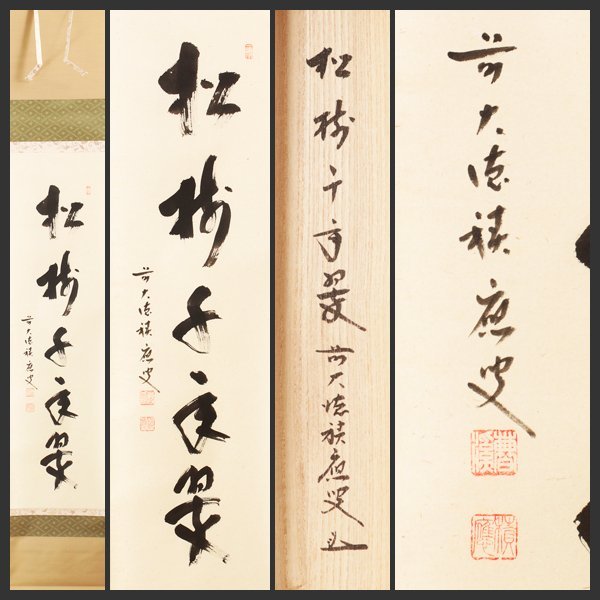 松樹千年翠
前大徳積應叟
松樹千年翠
前大徳積應叟
松樹千年翠 前大徳積應叟
前大徳積應叟
積應